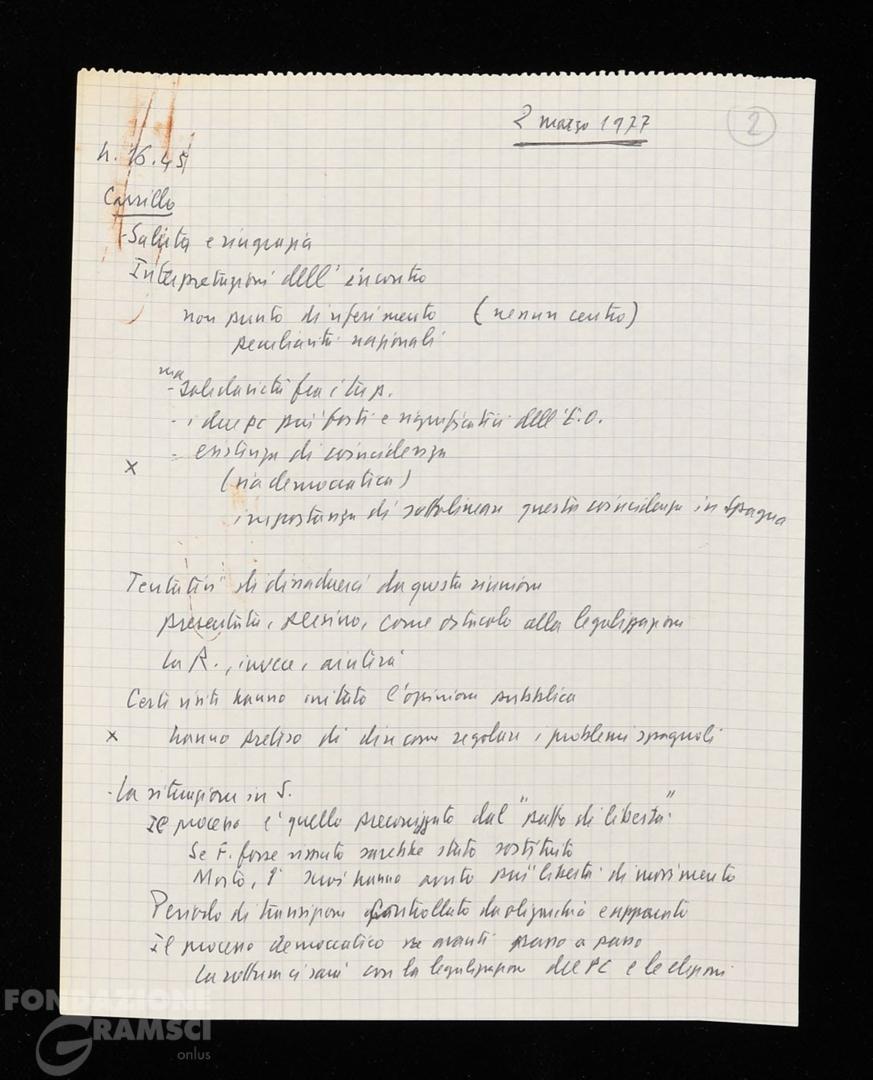 2 marzo 1977
2
h. 16.45
Carrillo
- Saluta e ringrazia
Interpretazioni dell'incontro
non punto di riferimento (nessun centro)
peculiarità nazionali
ma
- solidarietà fra i tre p.
- i due pc più forti e significativi dell'E.O.
- esistenza di coincidenza
x
(via democratica)
importanza di sottolineare questa coincidenza in Spagna
Tentativi di dissuaderci da questa riunione
presentata, persino, come ostacolo alla legalizzazione
La R., invece, aiuterà
Certi hanno irritato l'opinione pubblica
x hanno preteso di dire come regolare i problemi spagnoli
- La situazione in S.
Il processo è quello preconizzato dal "patto di libertà"
Se F. fosse vissuto sarebbe stato sostituito
Morto, i suoi hanno avuto più libertà di movimento
Periodo di transizione controllato da oligarchia e apparato
Il processo democratico va avanti passo a passo
La rottura ci sarà con la legalizzazione del PC e le elezioni
FONDAZIONE
GRAMSCI
onlus